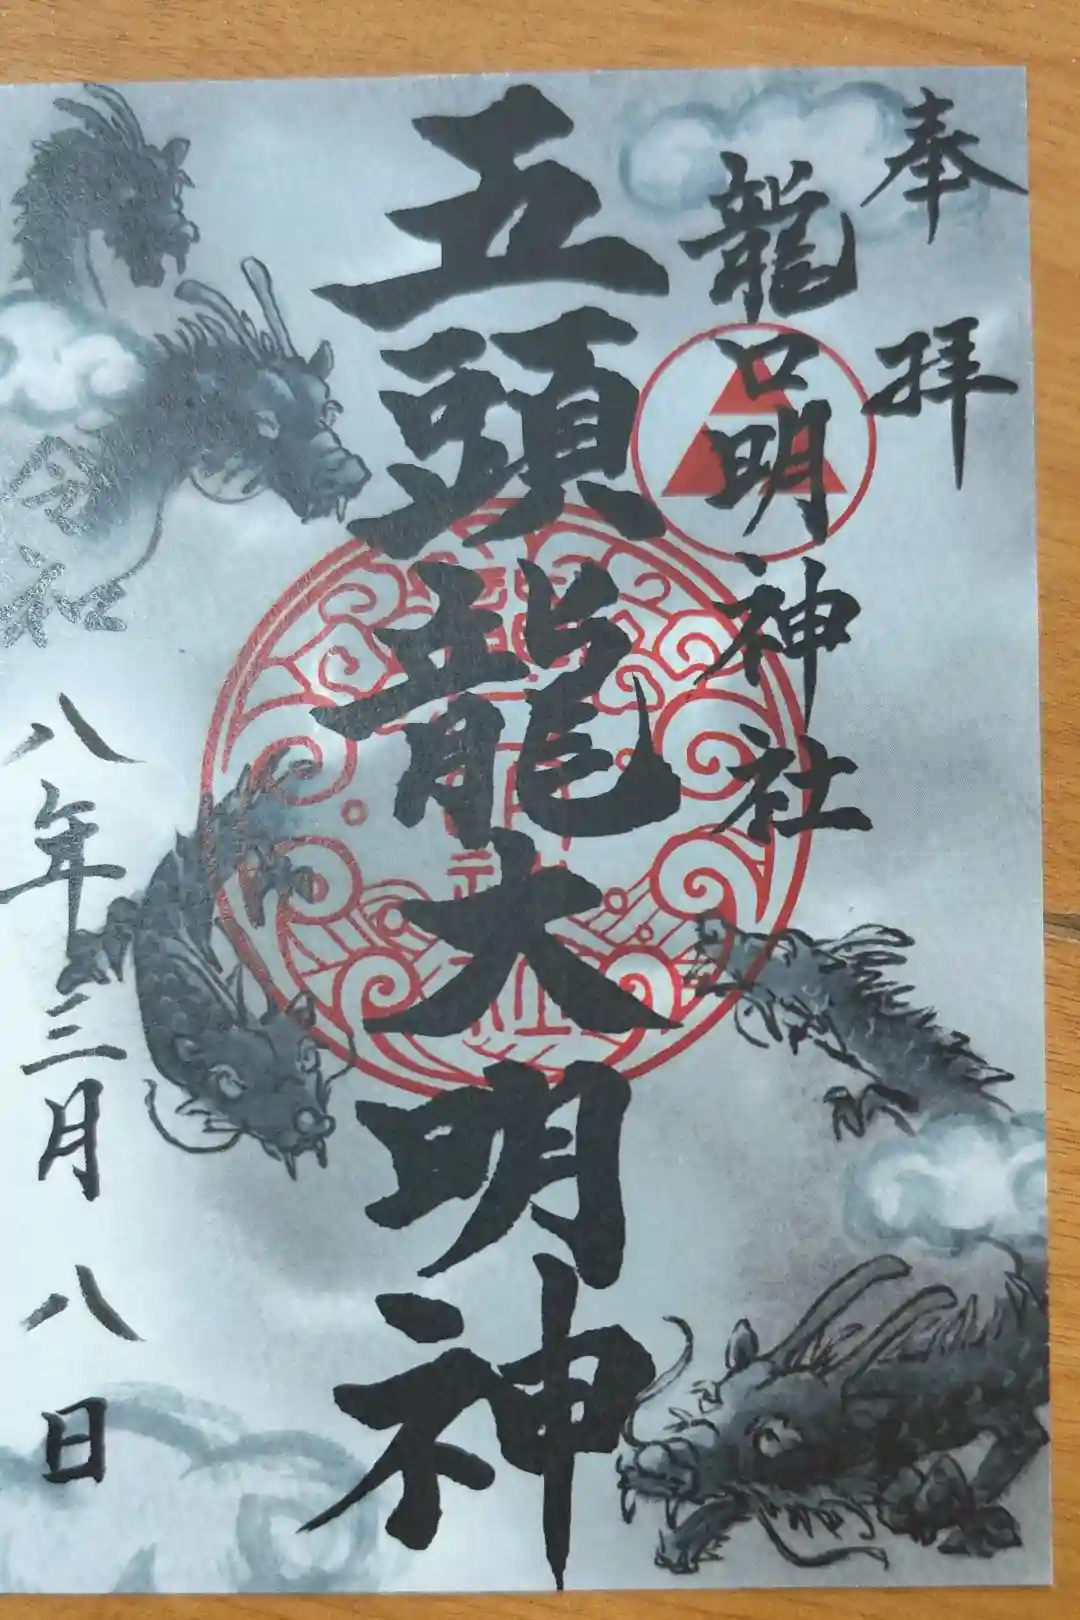 奉拝
龍口明神社
五頭龍大明神
令和八年三月八日